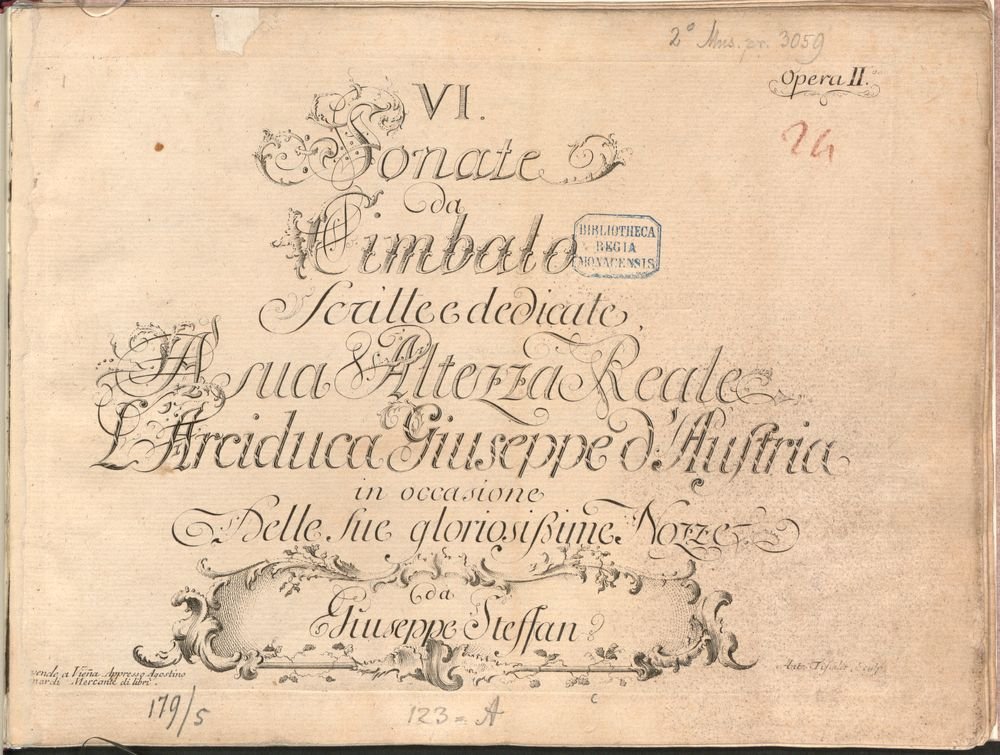 2° Mus. pr. 3059
Opera II.
24
VI.
Sonate
da
Cimbalo
BIBLIOTHECA
REGIA
MONACENSIS
Scritte e dedicate
A sua Altezza Reale
L'Arciduca Giuseppe d'Austria
in occasione
Delle sue gloriosißime Nozze
da
Giuseppe Steffan
vende a Vieña Appresso Agostino
nardi Mercante di libri.
179/5
123 = A